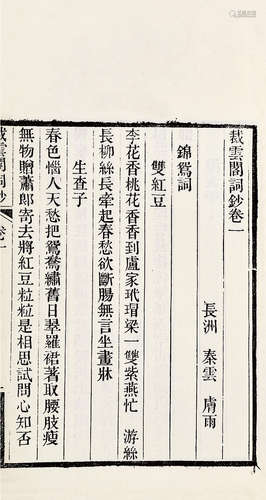 裁雲閣詞鈔卷一
長洲 秦雲 膚雨
錦鴛詞
雙紅豆
李花香桃花香香到盧家玳瑁梁一雙紫燕忙 游絲
長柳絲長牽起春愁欲斷腸無言坐畫牀
生查子
春色惱人天愁把鴛鴦繡舊日翠羅裙著取腰肢瘦
無物贈蕭郎寄去將紅豆粒粒是相思試問心知否
裁雲閣詞鈔 卷一